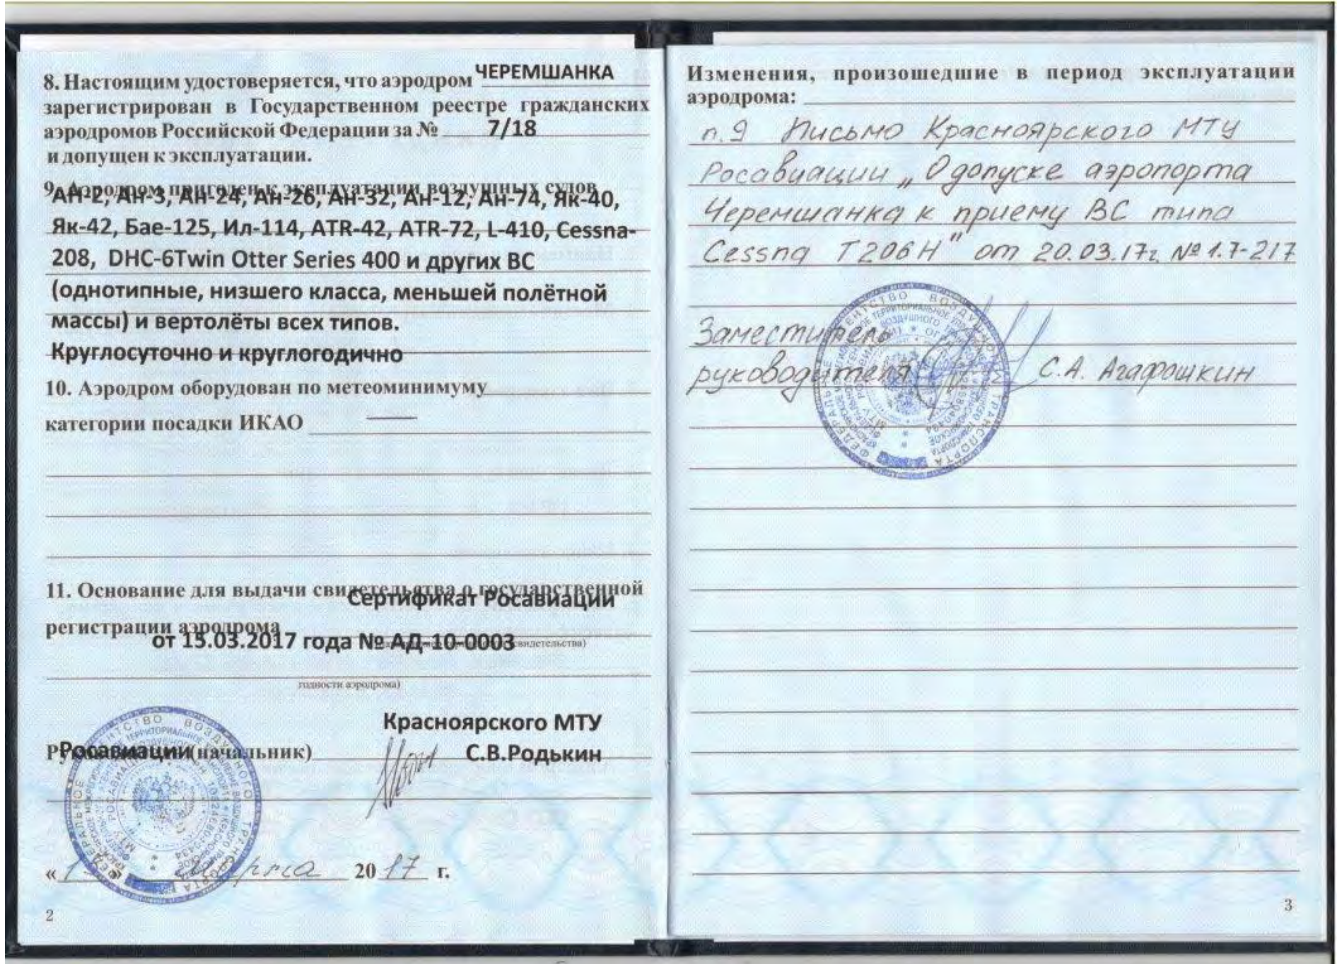 8. Настоящим удостоверяется, что аэродром ЧЕРЕМШАНКА
зарегистрирован в Государственном реестре гражданских
аэродромов Российской Федерации за № 7/18
и допущен к эксплуатации.
9. Аэродром пригоден к эксплуатации воздушных судов
АН-2, АН-3, АН-24, АН-26, Ан-32, Ан-12, Ан-74, Як-40,
Як-42, Бае-125, Ил-114, ATR-42, ATR-72, L-410, Cessna-
208, DHC-6Twin Otter Series 400 и других ВС
(однотипные, низшего класса, меньшей полётной
массы) и вертолёты всех типов.
Круглосуточно и круглогодично
10. Аэродром оборудован по метеоминимуму
категории посадки ИКАО —
11. Основание для выдачи свидетельства о государственной
Сертификат Росавиации
регистрации аэродрома
от 15.03.2017 года № АД-10-0003
свидетельства)
годности аэродрома)
Красноярского МТУ
Росавиации (начальник) С.В.Родькин
марта 2017 г.
2
Изменения, произошедшие в период эксплуатации
аэродрома:
п.9 Письмо Красноярского МТУ
Росавиации „О допуске аэропорта
Черемшанка к приему ВС типа
Cessna T206H" от 20.03.17г. № 1.7-217
Заместитель
руководителя С.А. Агафошкин
ФЕДЕРАЛЬНОЕ АГЕНТСТВО ВОЗДУШНОГО ТРАНСПОРТА
3